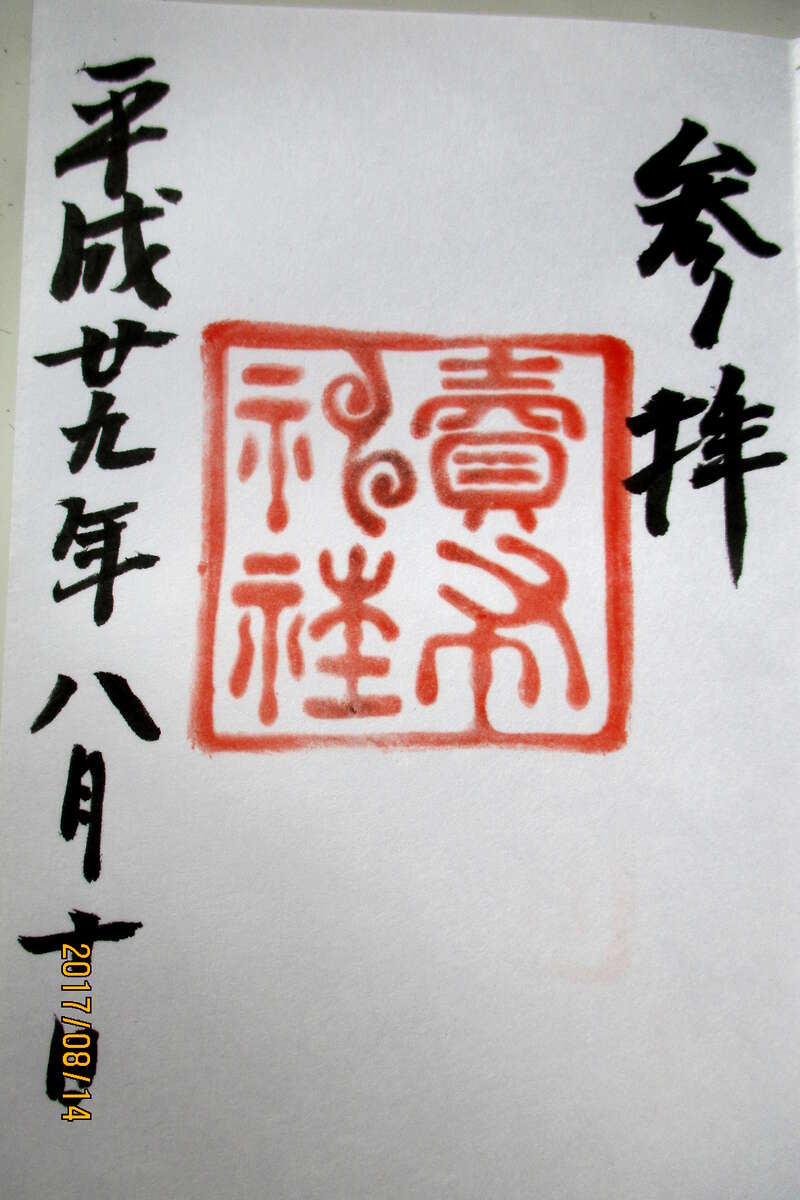 参拝
賣布
神社
平成廿九年八月十日
2017/08/14